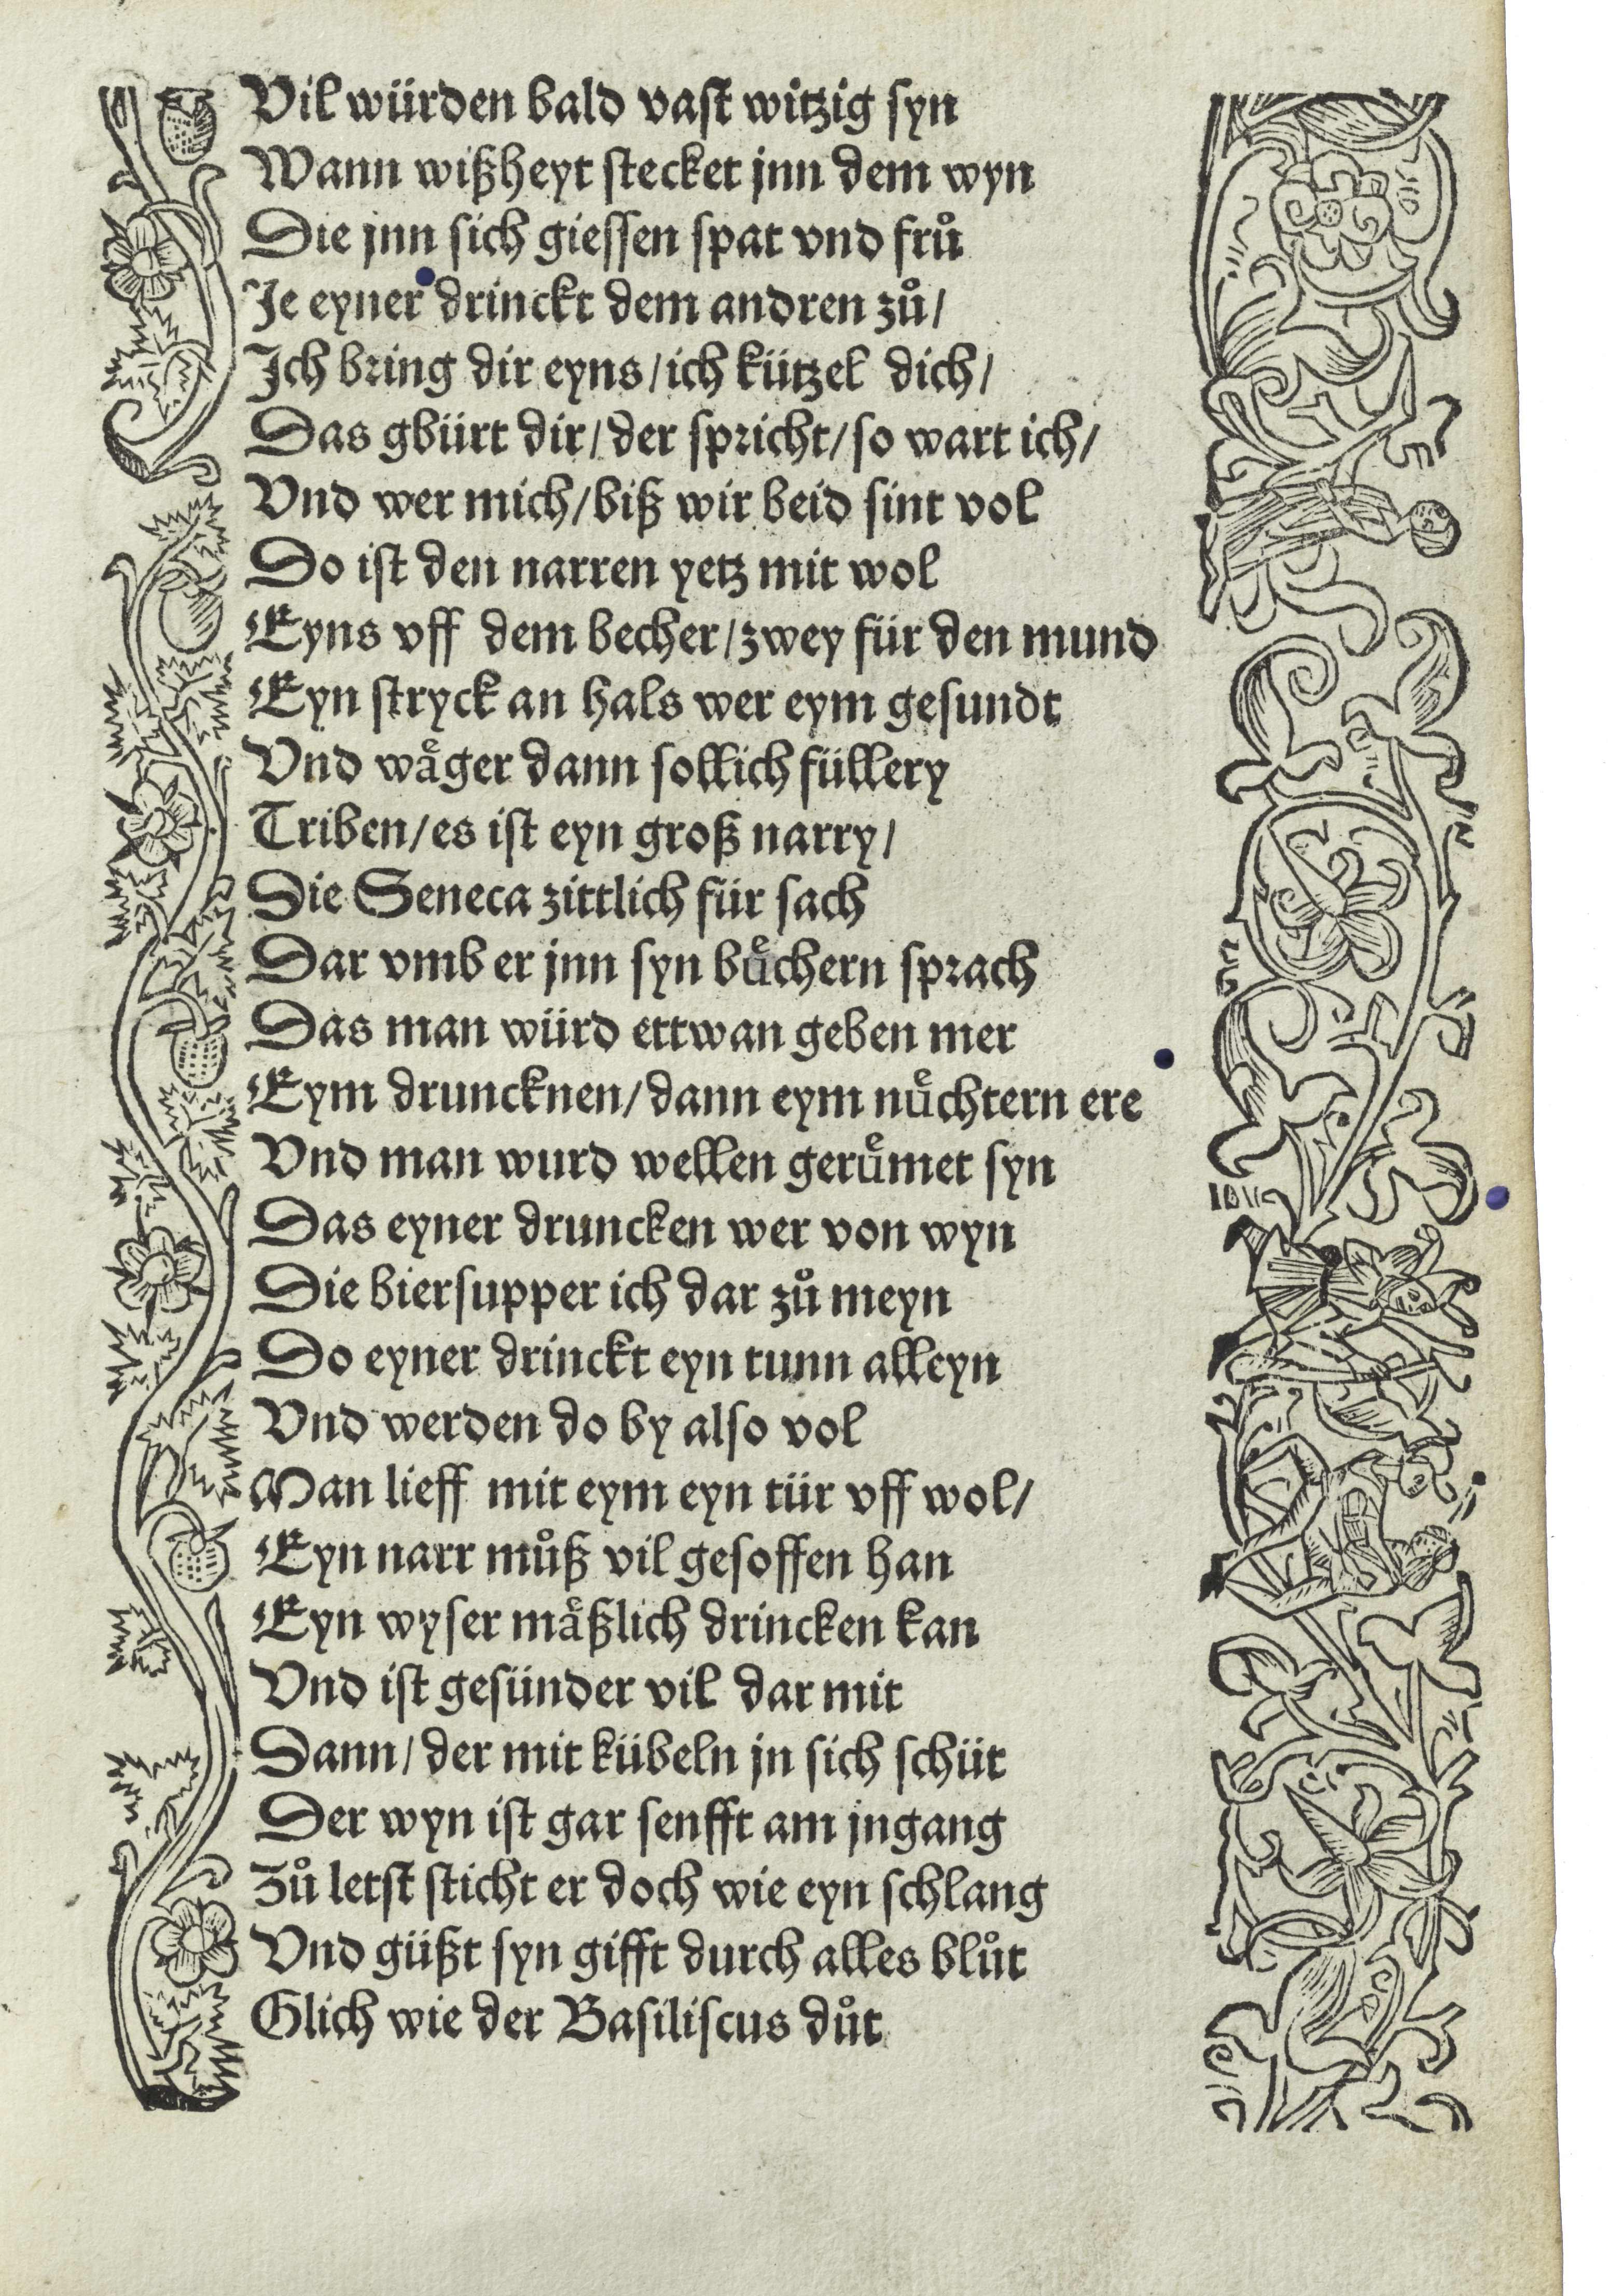 Vil würden bald vast witzig syn
Wann wißheyt stecket jnn dem wyn
Die jnn sich giessen spat vnd fruͦ
Je eyner drinckt dem andren zuͦ/
Ich bring dir eyns/ich kützel dich/
Das gbürt dir/der spricht/so wart ich/
Vnd wer mich/biß wir beid sint vol
Do ist den narren yetz mit wol
Eyns vff dem becher/zwey für den mund
Eyn stryck an hals wer eym gesundt
Vnd waͤger dann sollich füllery
Triben/es ist eyn groß narry/
Die Seneca zittlich für sach
Dar vmb er jnn syn buͤchern sprach
Das man würd ettwan geben mer
Eym druncknen/dann eym nuͤchtern ere
Vnd man wurd wellen geruͤmet syn
Das eyner druncken wer von wyn
Die biersupper ich dar zuͦ meyn
Do eyner drinckt eyn tunn alleyn
Vnd werden do by also vol
Man lieff mit eym eyn tür vff wol/
Eyn narr muͦß vil gesoffen han
Eyn wyser maͤßlich drincken kan
Vnd ist gesünder vil dar mit
Dann/der mit kübeln jn sich schüt
Der wyn ist gar senfft am jngang
Zuͦ letst sticht er doch wie eyn schlang
Vnd güßt syn gifft durch alles bluͦt
Glich wie der Basiliscus duͦt